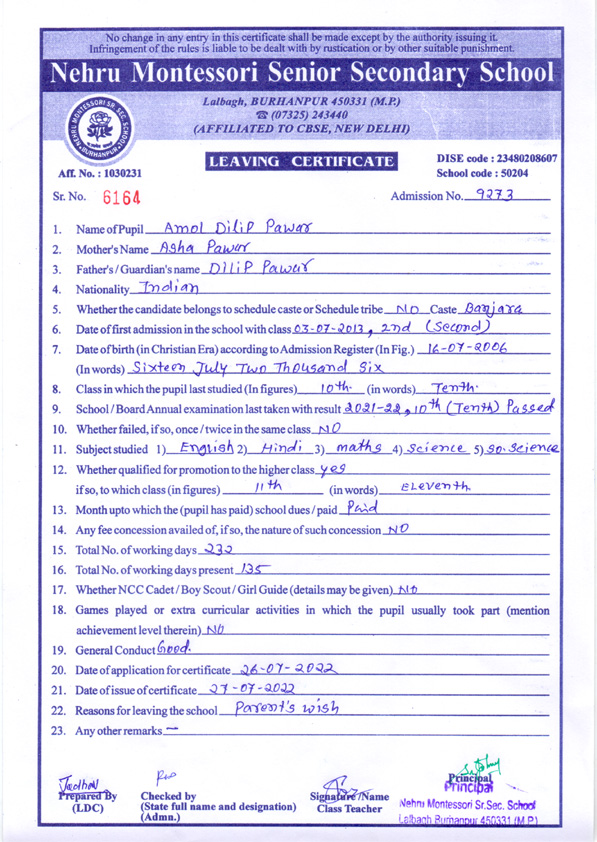 No change in any entry in this certificate shall be made except by the authority issuing it.
Infringement of the rules is liable to be dealt with by rustication or by other suitable punishment.
Nehru Montessori Senior Secondary School
Lalbagh, BURHANPUR 450331 (M.P.)
☎ (07325) 243440
(AFFILIATED TO CBSE, NEW DELHI)
NEHRU MONTESSORI SR. SEC. SCHOOL
BURHANPUR
Aff. No. : 1030231
LEAVING CERTIFICATE
DISE code : 23480208607
School code : 50204
Sr. No. 6164
Admission No. 9273
1. Name of Pupil Amol Dilip Pawar
2. Mother's Name Asha Pawar
3. Father's / Guardian's name Dilip Pawar
4. Nationality Indian
5. Whether the candidate belongs to schedule caste or Schedule tribe NO Caste Banjara
6. Date of first admission in the school with class 03-07-2013, 2nd (Second)
7. Date of birth (in Christian Era) according to Admission Register (In Fig.) 16-07-2006
(In words) Sixteen July Two Thousand Six
8. Class in which the pupil last studied (In figures) 10th. (in words) Tenth.
9. School / Board Annual examination last taken with result 2021-22, 10th (Tenth) Passed
10. Whether failed, if so, once / twice in the same class NO
11. Subject studied 1) English 2) Hindi 3) maths 4) Science 5) so. Science
12. Whether qualified for promotion to the higher class yes
if so, to which class (in figures) 11th (in words) Eleventh.
13. Month upto which the (pupil has paid) school dues / paid Paid
14. Any fee concession availed of, if so, the nature of such concession NO
15. Total No. of working days 232
16. Total No. of working days present 135
17. Whether NCC Cadet / Boy Scout / Girl Guide (details may be given) NO
18. Games played or extra curricular activities in which the pupil usually took part (mention
achievement level therein) NO
19. General Conduct Good.
20. Date of application for certificate 26-07-2022
21. Date of issue of certificate 27-07-2022
22. Reasons for leaving the school Parent's wish
23. Any other remarks —
Prepared By
(LDC)
Checked by
(State full name and designation)
(Admn.)
Signature /Name
Class Teacher
Principal
Principal
Nehru Montessori Sr.Sec. School
Lalbagh Burhanpur 450331 (M.P.)